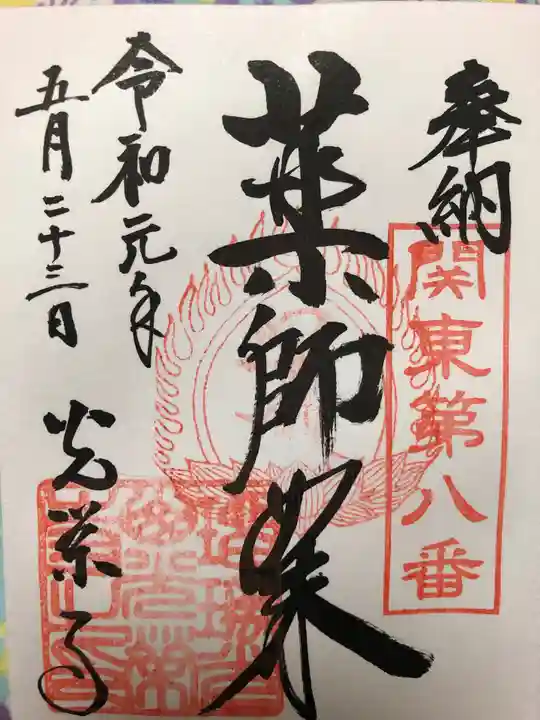 奉納
関東第八番
薬師如来
令和元年
五月二十三日
光榮寺